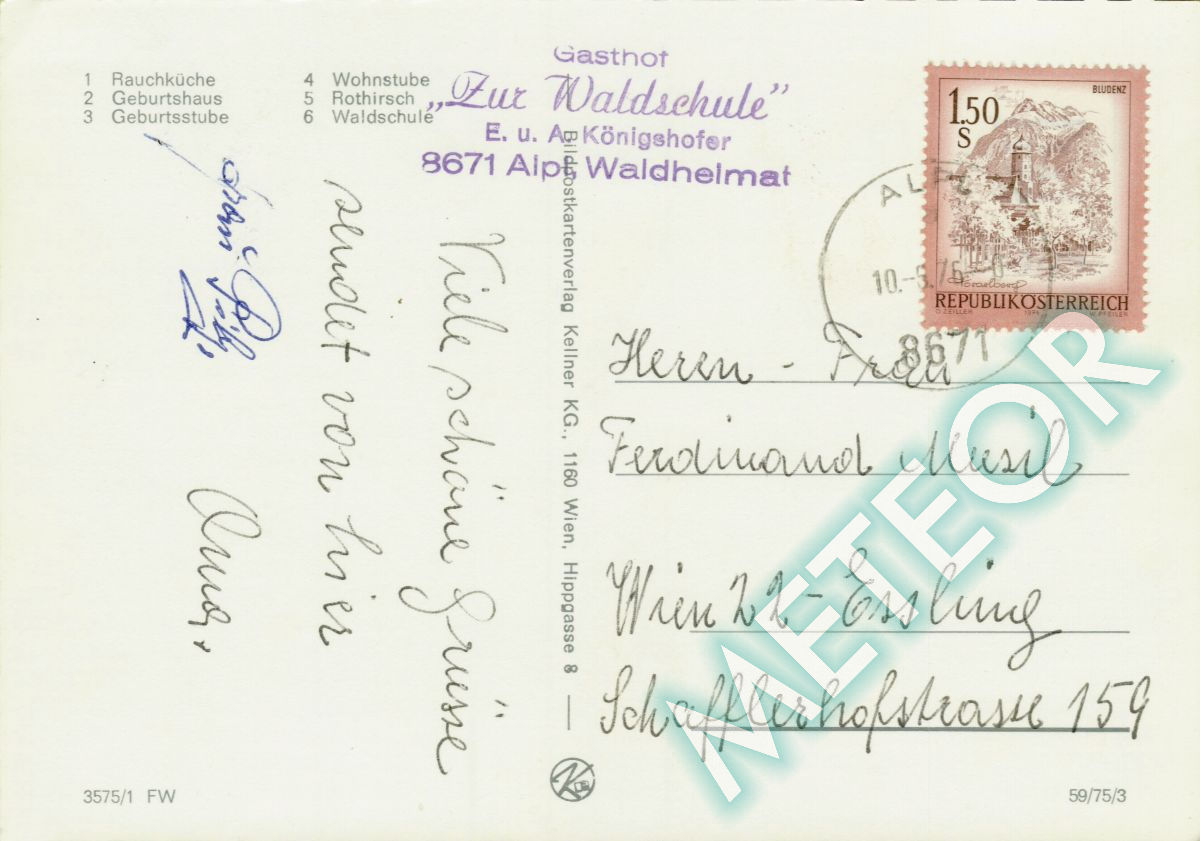 1 Rauchküche
2 Geburtshaus
3 Geburtsstube
4 Wohnstube
5 Rothirsch
6 Waldschule
Gasthof
„Zur Waldschule"
E. u. A. Königshofer
8671 Alpl, Waldheimat
1.50
S
BLUDENZ
Vorarlberg
REPUBLIK ÖSTERREICH
O. ZEILLER 1974 W. PFEILER
ALPL
10.-5.76-8
8671
Viele schöne Grüsse
sendet von hier
Anna,
Bildpostkartenverlag Kellner KG., 1160 Wien, Hippgasse 8
Herrn - Frau
Ferdinand Musil
Wien 22 - Essling
Schafflerhofstrasse 159
METEOR
3575/1 FW
59/75/3